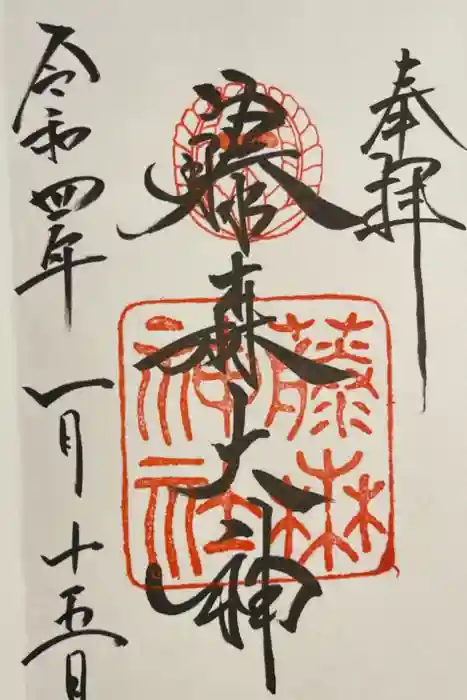 奉拝
藤森大神
藤森神社
令和四年一月十五日